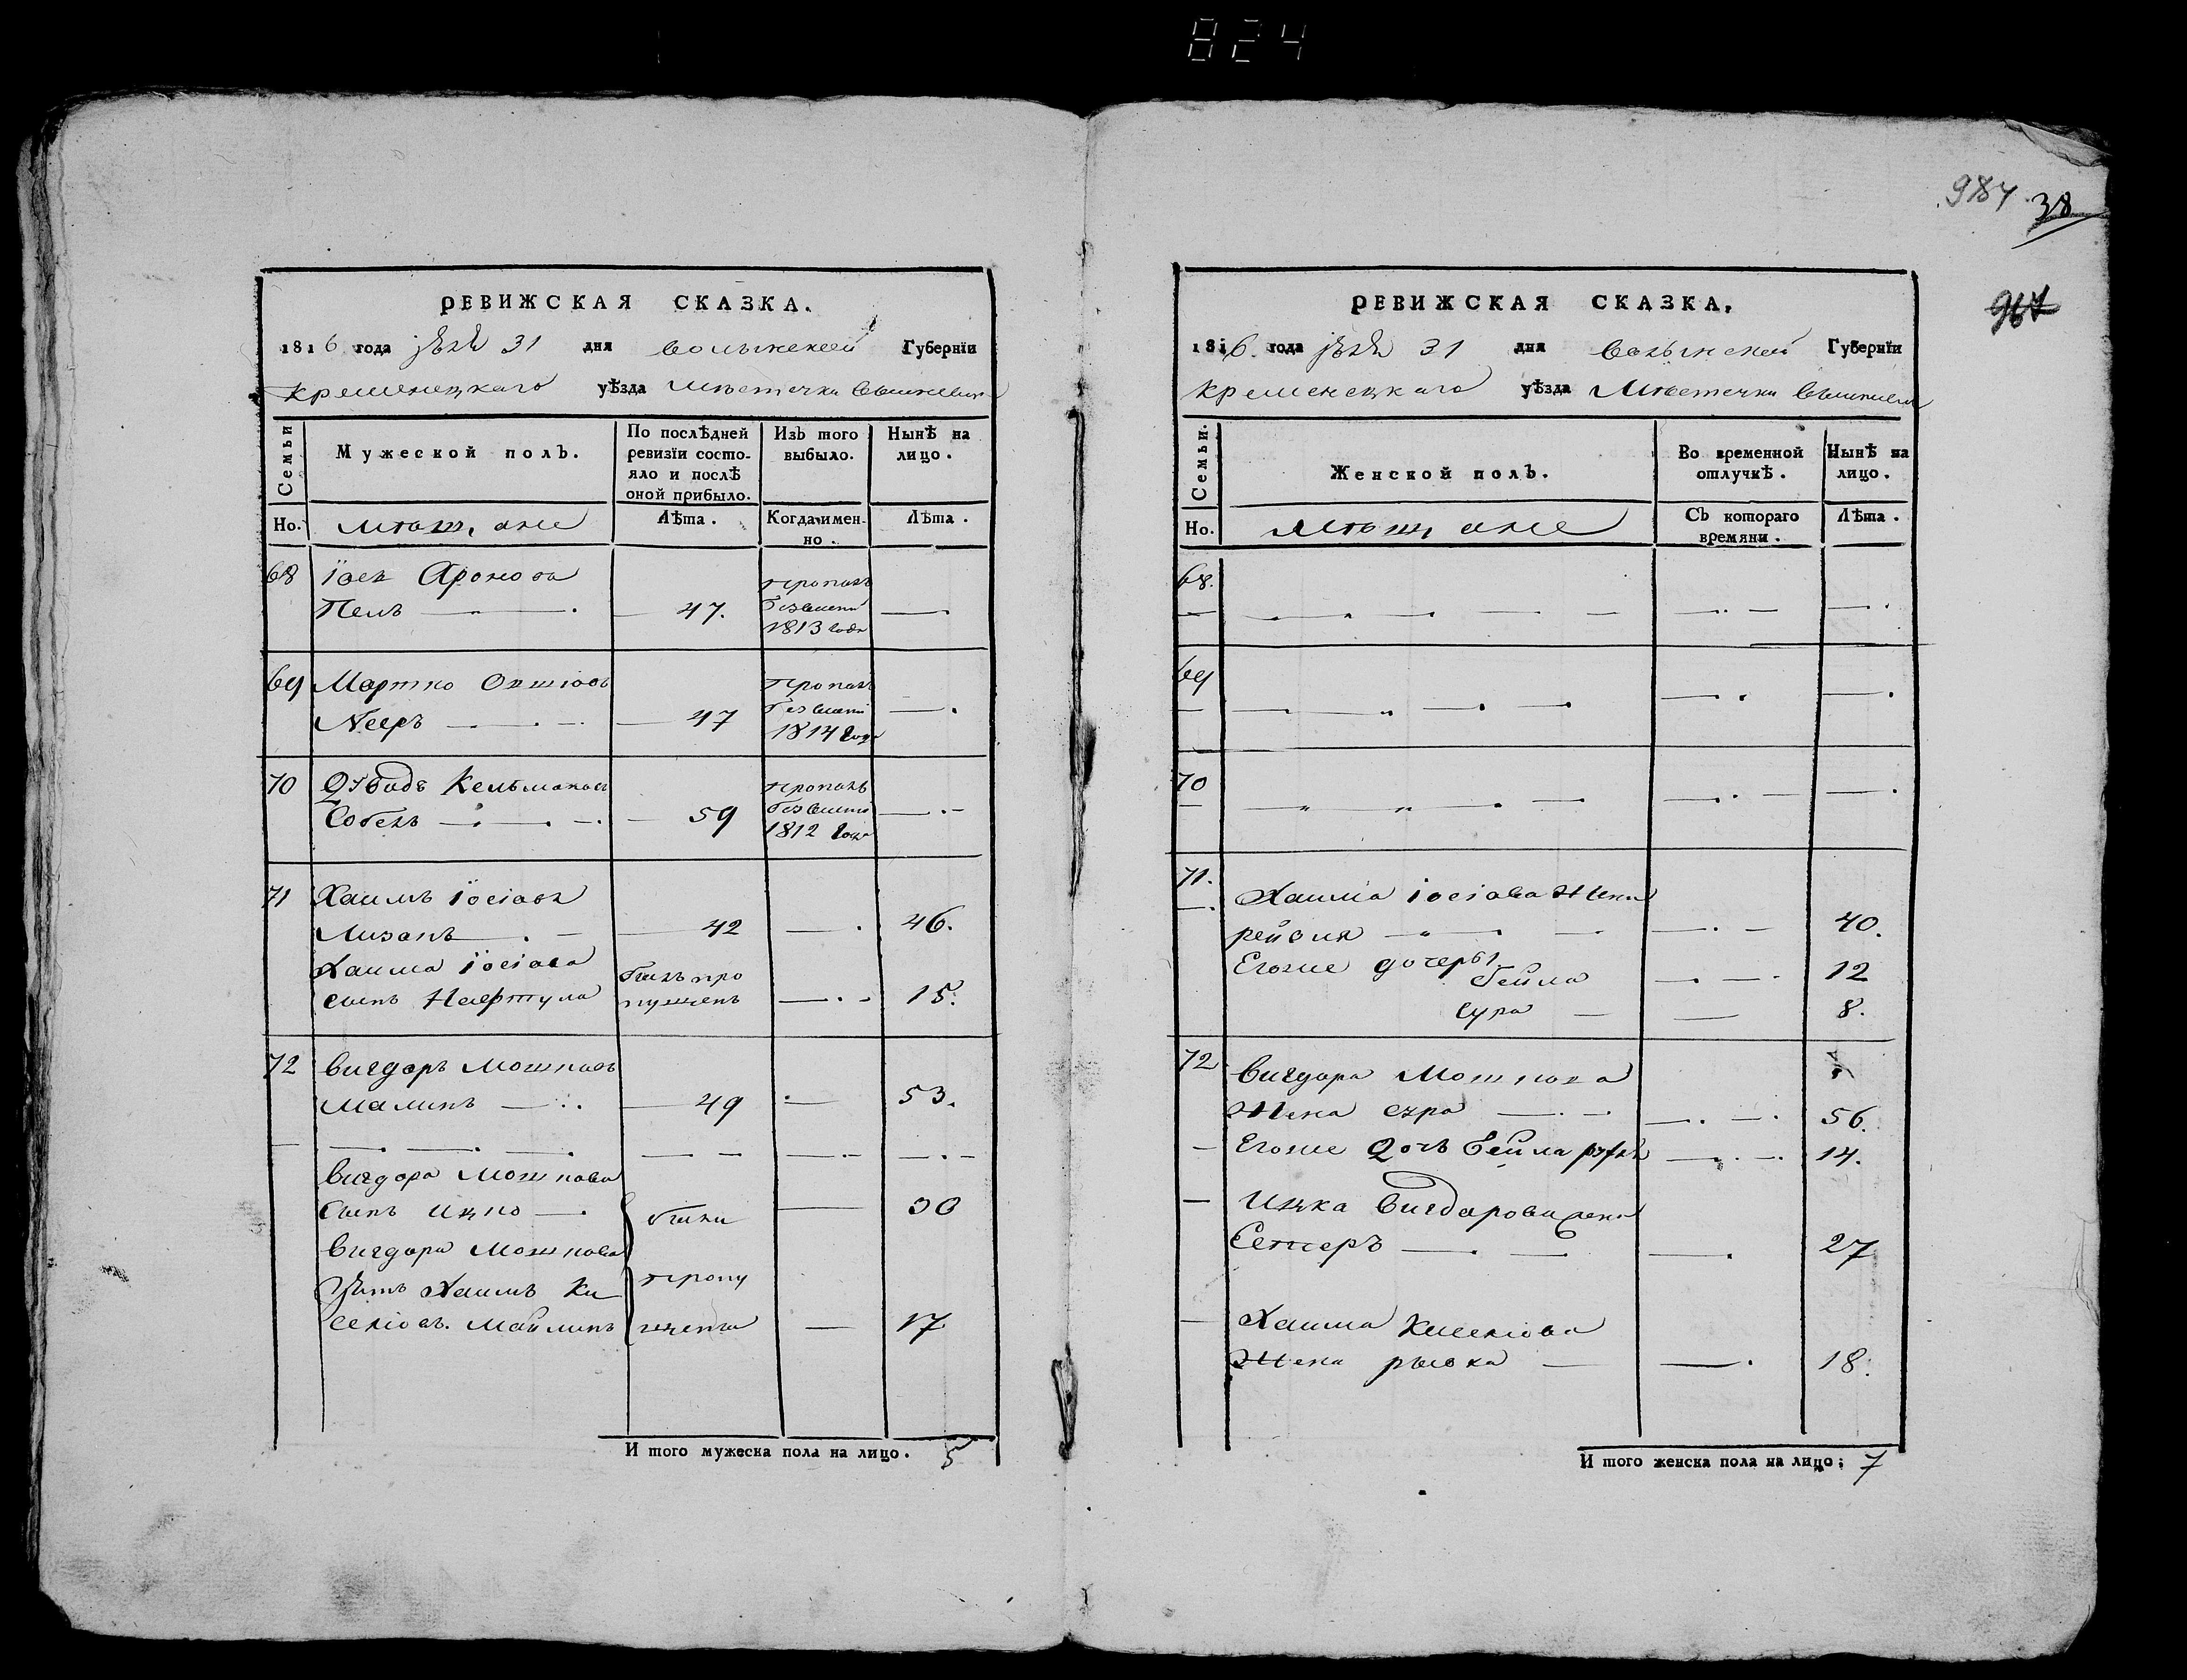 824
987 38
967
РЕВИЖСКАЯ СКАЗКА.
1816 года 31 дня волынской Губернїи
кременецкаго уѣзда Мѣстечка
Семьи
Мужеской полъ.
По послѣдней ревизїи состо-
яло и послѣ
оной прибыло.
Изъ того
выбыло.
Нынѣ на
лицо.
Но.
мѣщане
Лѣта.
Когда имен-
но.
Лѣта.
68 Іосъ Аронова
Пелъ 47. пропалъ безвести 1813 года
69 Мартко
47 пропалъ безвести 1814 года
70 Давидъ Кельманов
59 пропалъ безвести 1812 года
71 Хаимъ іосіовъ
42 46.
Хаима Іосіова
сынъ былъ пропущенъ 15.
72 вигдоръ Мошковъ
малинъ 49 53.
вигдора Мошкова
сынъ ицко 30
вигдора Мошкова были
зять Хаимъ Ки пропу
селіовъ. щены 17
И того мужеска пола на лицо. 5
РЕВИЖСКАЯ СКАЗКА.
1816. года 31 дня волынской Губернїи
кременецкаго уѣзда Мѣстечка
Семьи.
Женской полъ.
Во временной
отлучкѣ.
Нынѣ на
лицо.
Но.
Мѣщане
Съ котораго
времяни.
Лѣта.
68.
69
70
71. Хаима іосіова жена
рейзля 40.
Егоже дочеры
бейла 12
сура 8.
72 вигдора Мошкова
Жена сура 56.
Егоже дочь бейла 14.
Ицка вигдорова жена
27
Хаима Киселіова
Жена рывка 18.
И того женска пола на лицо: 7